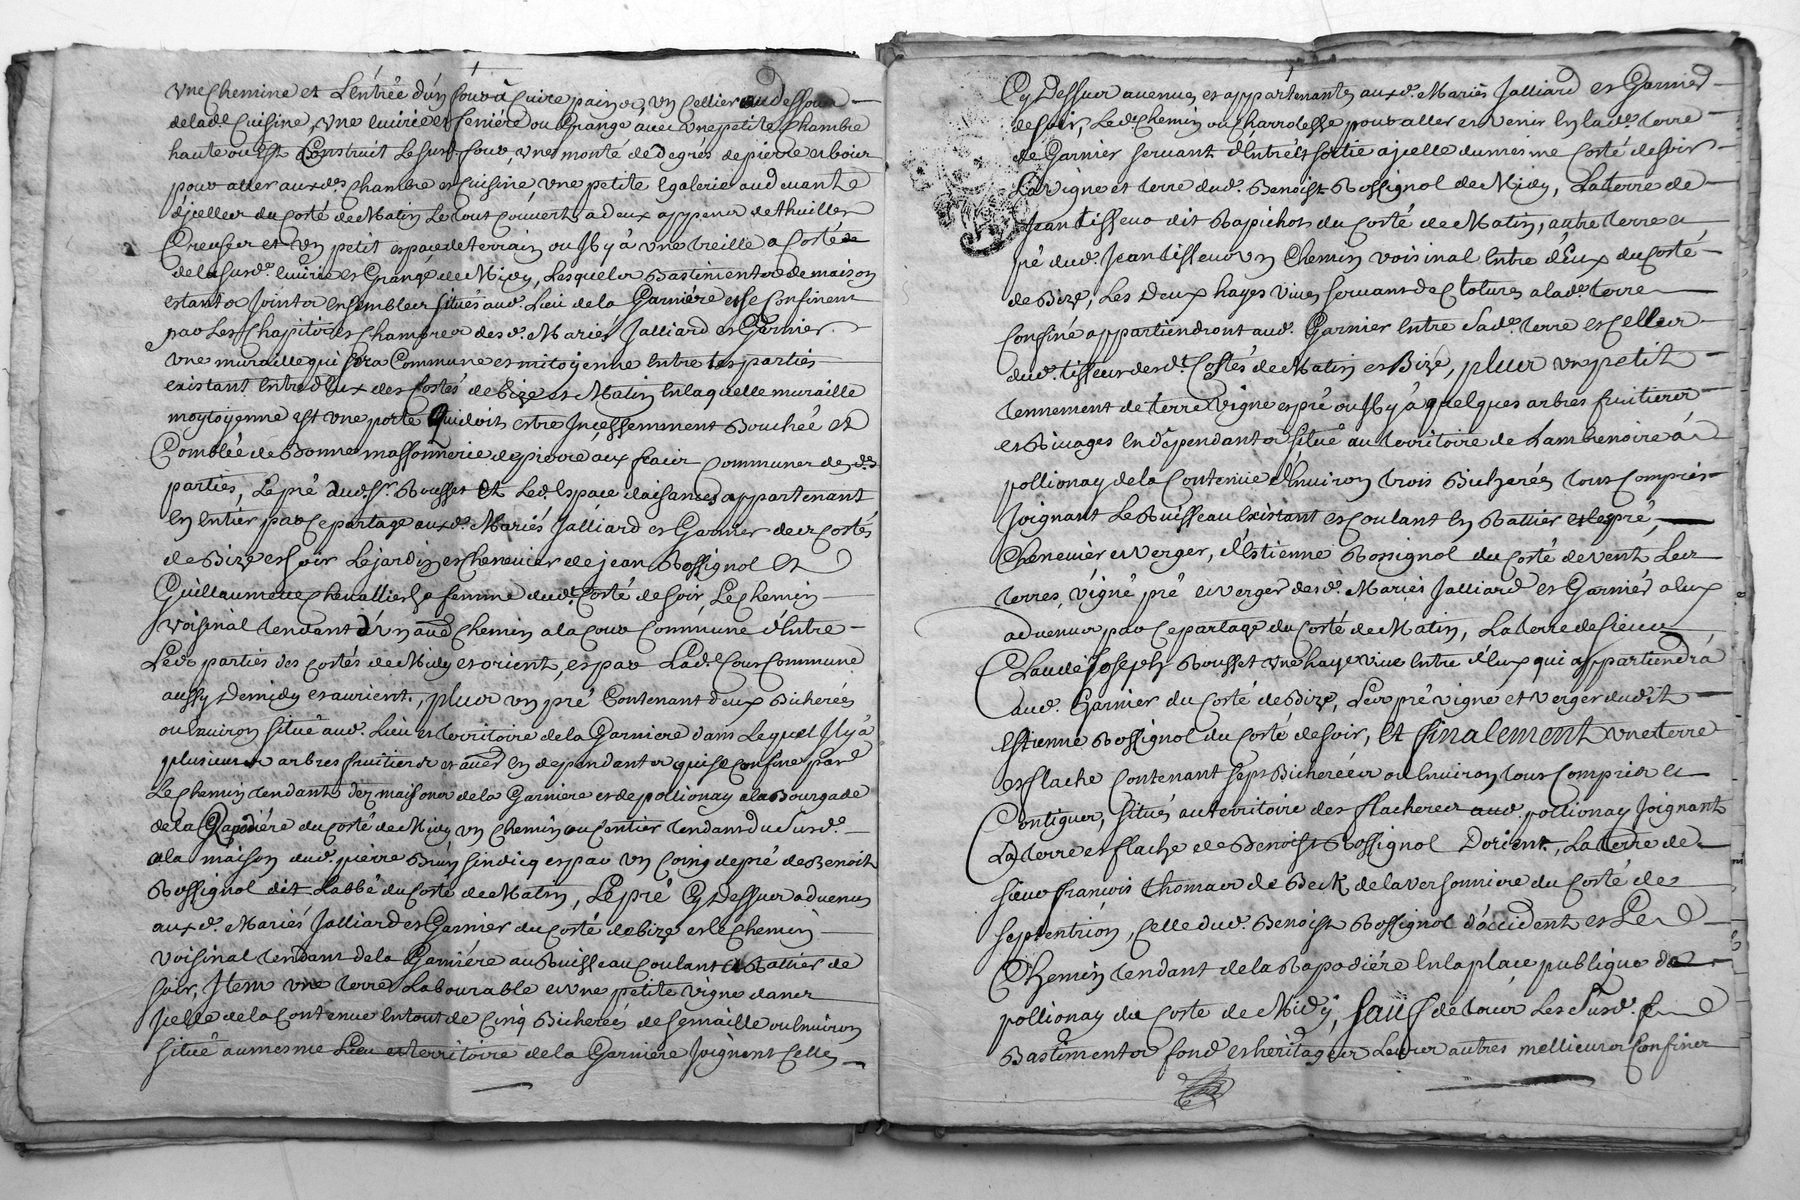 une chemine et L'entrée d'un four à Cuire pain, un Cellier au dessous
de lad.e Cuisine, une Ecuirie et feniére ou Grange avec une petite Chambre
haute ou est Construit Lesusd. four, une monté de degrés de pierre et bois
pour aller auxd.es Chambre et Cuisine, une petite Egalerie au devant
d'jcelles du Costé de Matin Le tout Couvert a deux appens de thuilles
Creuses et un petit espace de terrain ou Jl y à une treille a Costé
de la susd.e Ecuirie et Grange de Midy, Lesquels Bastiments de maison
estants Joints ensembles situés aud. Lieu de la Garniére et se Confinent
par Les Chapitis et Chambres desd. Mariés Jalliard et Garnier
une muraille qui sera Commune et mitoyenne Entre les parties
existant Entre d'Eux des Costés de Bize et Matin En laquelle muraille
moytoyenne est une porte qui doit estre Jncessemment Bouchée et
Comblée de Bonne massonnerie de pierre aux fraix Communes desd.
parties, Le pré dud. Sr. Rousset Et Led. Espace d'aisances appartenant
En Entier par Ce partage auxd. Mariés Jalliard et Garnier des Costés
de Bize et soir Le jardin et Chenevier de jean Rossignol Et
Guillaumette Chevallier sa femme dud. Costé de soir, Le Chemin
voisinal tendant d'un aud. Chemin a la Cour Commune d'Entre
Lesd. parties des Costés de Midy et orient, et par Lad. Cour Commune
aussy de midy et aurient, plus un pré Contenant deux Bicherées
ou Environ situé aud. Lieu et territoire de la Garniere dans Lequel Jl y à
plusieurs arbres fruitiers et autres En dependants qui se Confine par
Le chemin tendant des maisons de la Garniere et de pollionay a la Bourgade
de la Rapodiére du Costé de Midy un Chemin ou Sentier tendant du Susd.
a la maison dud. pierre Brun sindicq et par un Coing de pré de Benoit
Rossignol dit Labbé du Costé de Matin, Le pré Cy dessus advenu
auxd. Mariés Jalliard et Garnier du Costé de bize et le Chemin
voisinal tendant de la Garniére au Ruisseau Coulant de Rattier de
soir, Jtem une terre Labourable et une petite vigne dans
Jcelle de la Contenue En tout de Cinq Bicherées de semaille ou Environ
situé au mesme Lieu et territoire de la Garniere Joignent Celles
Cy Dessus avenues et appartenantes auxd. Mariés Jalliard et Garnier
de soir, Led. Chemin ou Charrolesse pour aller et venir En lad.e terre
de Garnier servant d'Entrée et sortie a jcelle du mesme Costé de soir
La vigne et terre dud. Benoist Rossignol de Midy, La terre de
Jean tisseur dit Rapichon du Costé de Matin, autre terre et
pré dud. Jean tisseur un Chemin voisinal Entre d'Eux du Costé
de Bize, Les Deux hayes vives servant de Clotures a lad.e terre
Confiné appartiendront aud. Garnier Entre Sad.e terre et Celles
dud. tisseur desd.t Costés de Matin et Bize, plus un petit
tennement de terre vigne et pré ou Jl y à quelques arbres fruitiers
et Rivages En dépendants situé au territoire de Lambrenoire à
pollionay de la Contenue d'Environ trois Bicherées tout Compris
Joignant Le Ruisseau Existant et Coulant En Rattier et le pré,
Chenevier et verger, d'Estienne Rossignol du Costé de vent Les
terres, vigne, pré et verger desd. Mariés Jalliard et Garnier a Eux
advenus par Ce partage du Costé de Matin, La terre de sieur
Claude Joseph Rousset une haye vive Entre d'Eux qui appartiendrà
aud. Garnier du Costé de Bize, Les pré vigne et verger dudit
Estienne Rossignol du Costé de soir, Et finalement une terre
et flache Contenant sept Bicherées ou Environ tout Compris et
Contigues, situés au territoire des flacheres aud. pollionay Joignant
La terre et flache de Benoist Rossignol D'orient, La terre de
sieur françois Thomas de Beck de la versonniere du Costé de
septentrion, Celle dud. Benoist Rossignol d'occident et Le
Chemin tendant de la Rapodiére En la place publique de
pollionay du Costé de Midy, sauf de tous Les Susd.
Bastiments fond et heritages Leurs autres mellieurs Confins